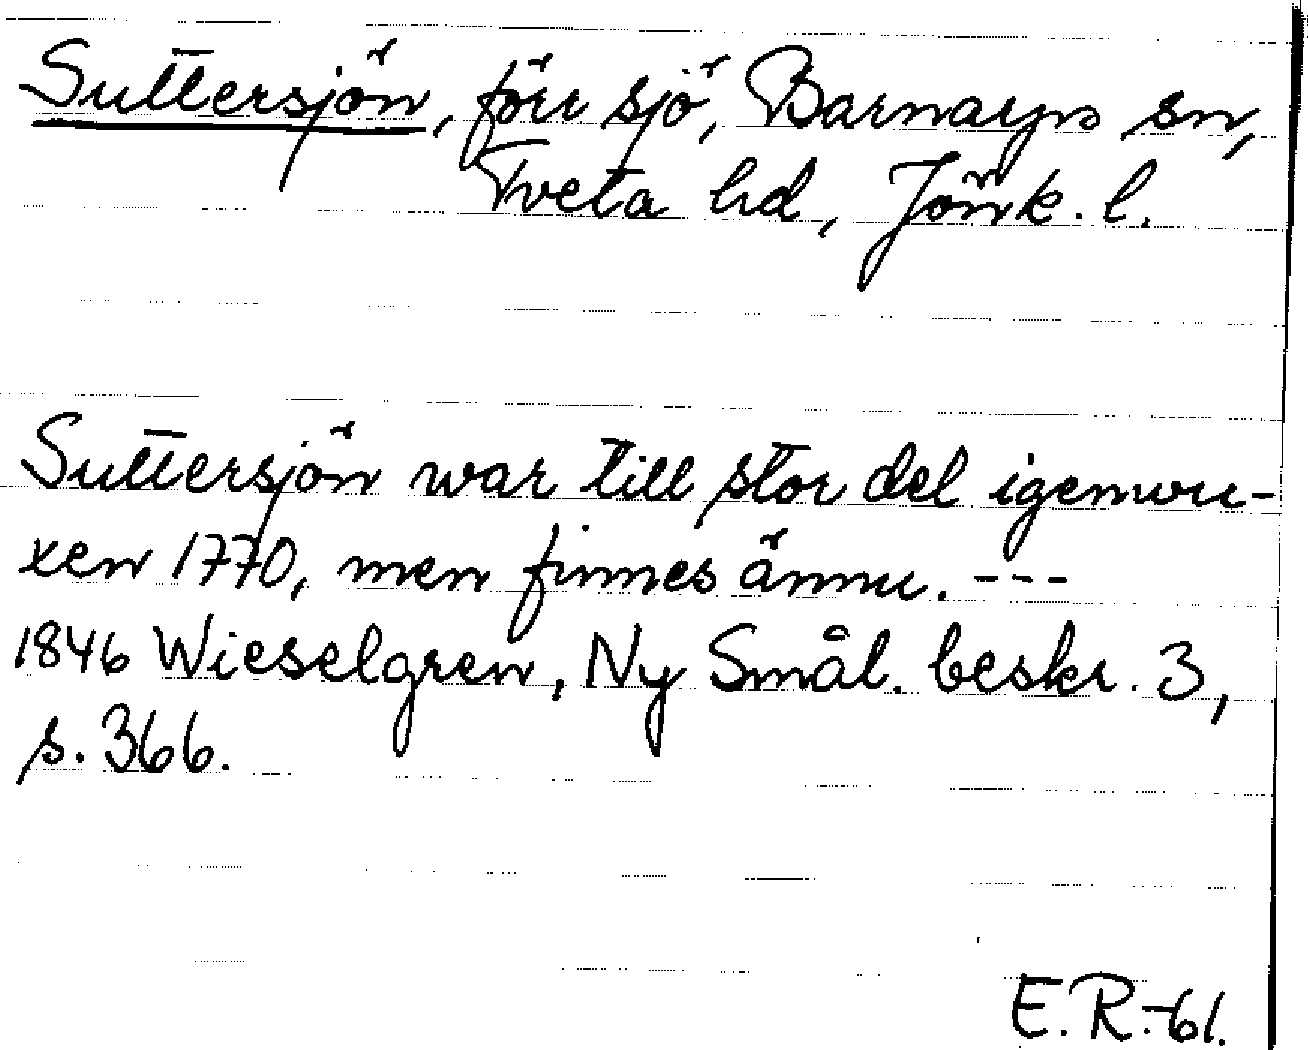 Suttersjön, förr sjö, Barnarps sn,
Tveta hd, Jönk. l.
Suttersjön war till stor del igenwu-
xen 1770, men finnes ännu. ---
1846 Wieselgren, Ny Smål. beskr. 3,
s. 366.
E.R.-61.